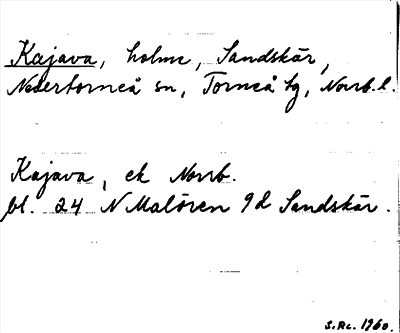 Kajava, holme, Sandskär,
Nedertorneå sn, Torneå tg, Norrb. l.
Kajava, ek Norrb.
bl. 24 N Malören 9d Sandskär.
S.Rc. 1960.